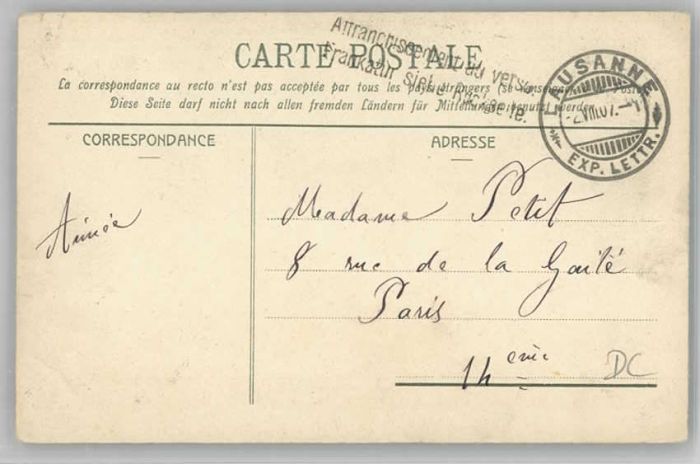 Affranchissement au verso.
Frankatur siehe Bildseite.
CARTE POSTALE
La correspondance au recto n'est pas acceptée par tous les pays étrangers (se renseigner à la Poste)
Diese Seite darf nicht nach allen fremden Ländern für Mitteilungen benutzt werden
LAUSANNE 1
2.VIII.07.
EXP. LETTR.
CORRESPONDANCE
ADRESSE
Aimée
Madame Petit
8 rue de la Gaité
Paris
14 eme
DC